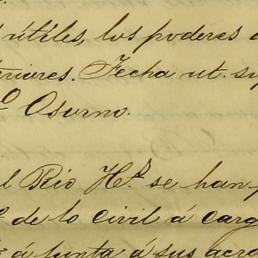 útiles, los poderes
teriores. Fecha ut. su
º Osorno.
l Rio H.ˢ se han
de lo Civil á carg
á junta á sus acre